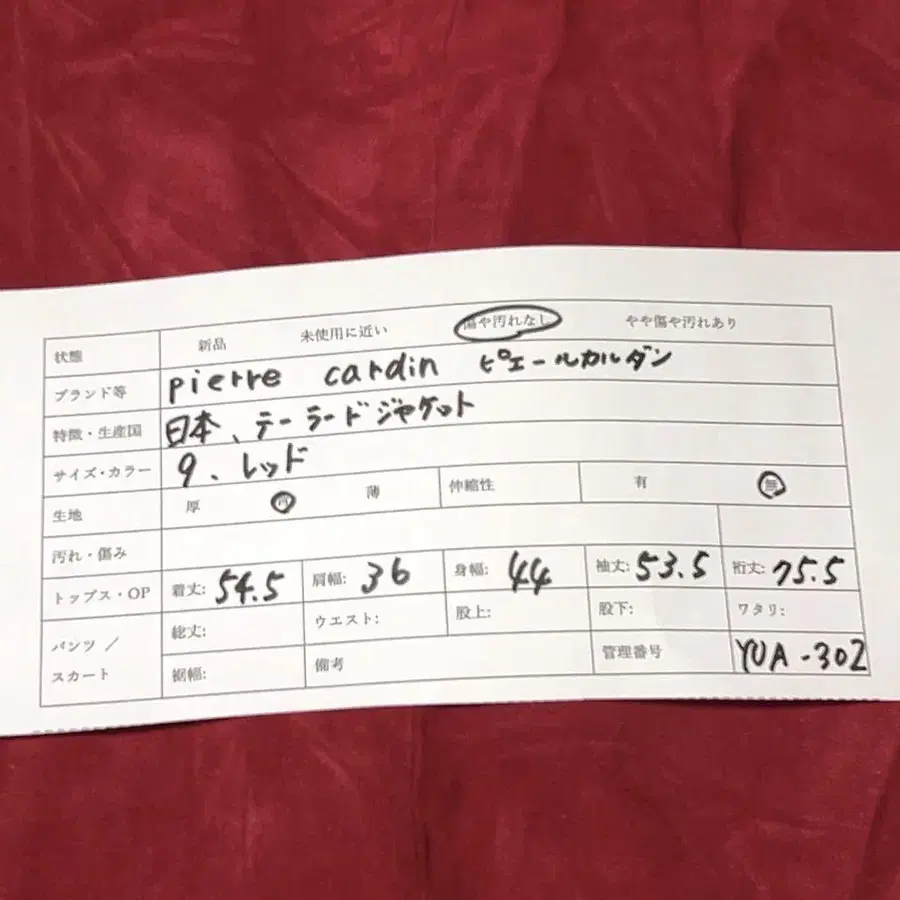 状態 新品 未使用に近い 傷や汚れなし やや傷や汚れあり
ブランド等 pierre cardin ピエールカルダン
特徴・生産国 日本、テーラードジャケット
サイズ・カラー 9、レッド
生地 厚 薄 伸縮性 有 無
汚れ・傷み
トップス・OP 着丈: 54.5 肩幅: 36 身幅: 44 袖丈: 53.5 裄丈: 75.5
パンツ／スカート 総丈: ウエスト: 股上: 股下: ワタリ:
裾幅: 備考 管理番号 YUA-302